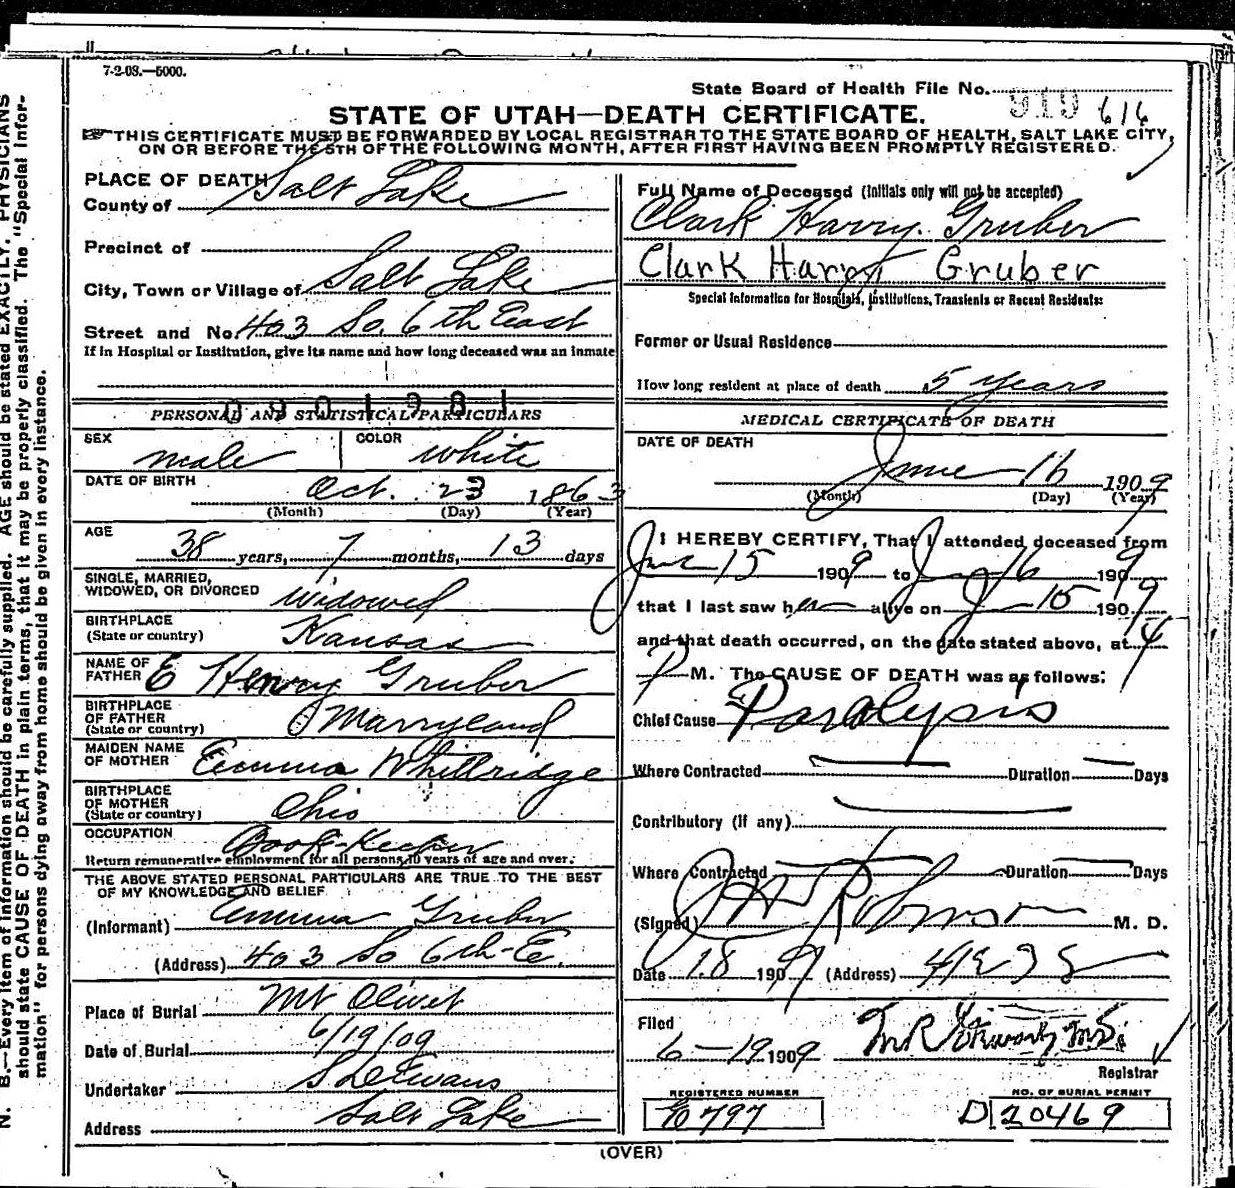 7-2-08.—5000.
State Board of Health File No. 919 616
STATE OF UTAH—DEATH CERTIFICATE.
THIS CERTIFICATE MUST BE FORWARDED BY LOCAL REGISTRAR TO THE STATE BOARD OF HEALTH, SALT LAKE CITY,
ON OR BEFORE THE 5TH OF THE FOLLOWING MONTH, AFTER FIRST HAVING BEEN PROMPTLY REGISTERED.
N. B.—Every item of information should be carefully supplied. AGE should be stated EXACTLY. PHYSICIANS
should state CAUSE OF DEATH in plain terms, that it may be properly classified. The "Special Infor-
mation" for persons dying away from home should be given in every instance.
PLACE OF DEATH
County of Salt Lake
Precinct of
City, Town or Village of Salt Lake
Street and No. 403 So. 6th East
If in Hospital or Institution, give its name and how long deceased was an inmate
0901981
PERSONAL AND STATISTICAL PARTICULARS
SEX male COLOR white
DATE OF BIRTH Oct. 23 1863
(Month) (Day) (Year)
AGE 38 years, 7 months, 13 days
SINGLE, MARRIED,
WIDOWED, OR DIVORCED widowed
BIRTHPLACE
(State or country) Kansas
NAME OF
FATHER E Henry Gruber
BIRTHPLACE
OF FATHER
(State or country) Marryland
MAIDEN NAME
OF MOTHER Emma Whittridge
BIRTHPLACE
OF MOTHER
(State or country) Ohio
OCCUPATION Book-Keeper
Return remunerative employment for all persons 10 years of age and over.
THE ABOVE STATED PERSONAL PARTICULARS ARE TRUE TO THE BEST
OF MY KNOWLEDGE AND BELIEF
(Informant) Emma Gruber
(Address) 403 So 6th-E.
Place of Burial Mt Olivet
Date of Burial 6/19/09
Undertaker S D Evans
Address Salt Lake
Full Name of Deceased (Initials only will not be accepted)
Clark Harry Gruber
Clark Harry Gruber
Special Information for Hospitals, Institutions, Transients or Recent Residents:
Former or Usual Residence
How long resident at place of death 5 years
MEDICAL CERTIFICATE OF DEATH
DATE OF DEATH
June 16 1909
(Month) (Day) (Year)
I HEREBY CERTIFY, That I attended deceased from
June 15 1909 to 16 1909
that I last saw h alive on 15 1909
and that death occurred, on the date stated above, at 4
P M. The CAUSE OF DEATH was as follows:
Chief Cause Paralysis
Where Contracted Duration Days
Contributory (if any)
Where Contracted Duration Days
(Signed) Robinson M. D.
Date 18 1909 (Address)
Filed
6-19 1909
Registrar
REGISTERED NUMBER NO. OF BURIAL PERMIT
797 D 20469
(OVER)